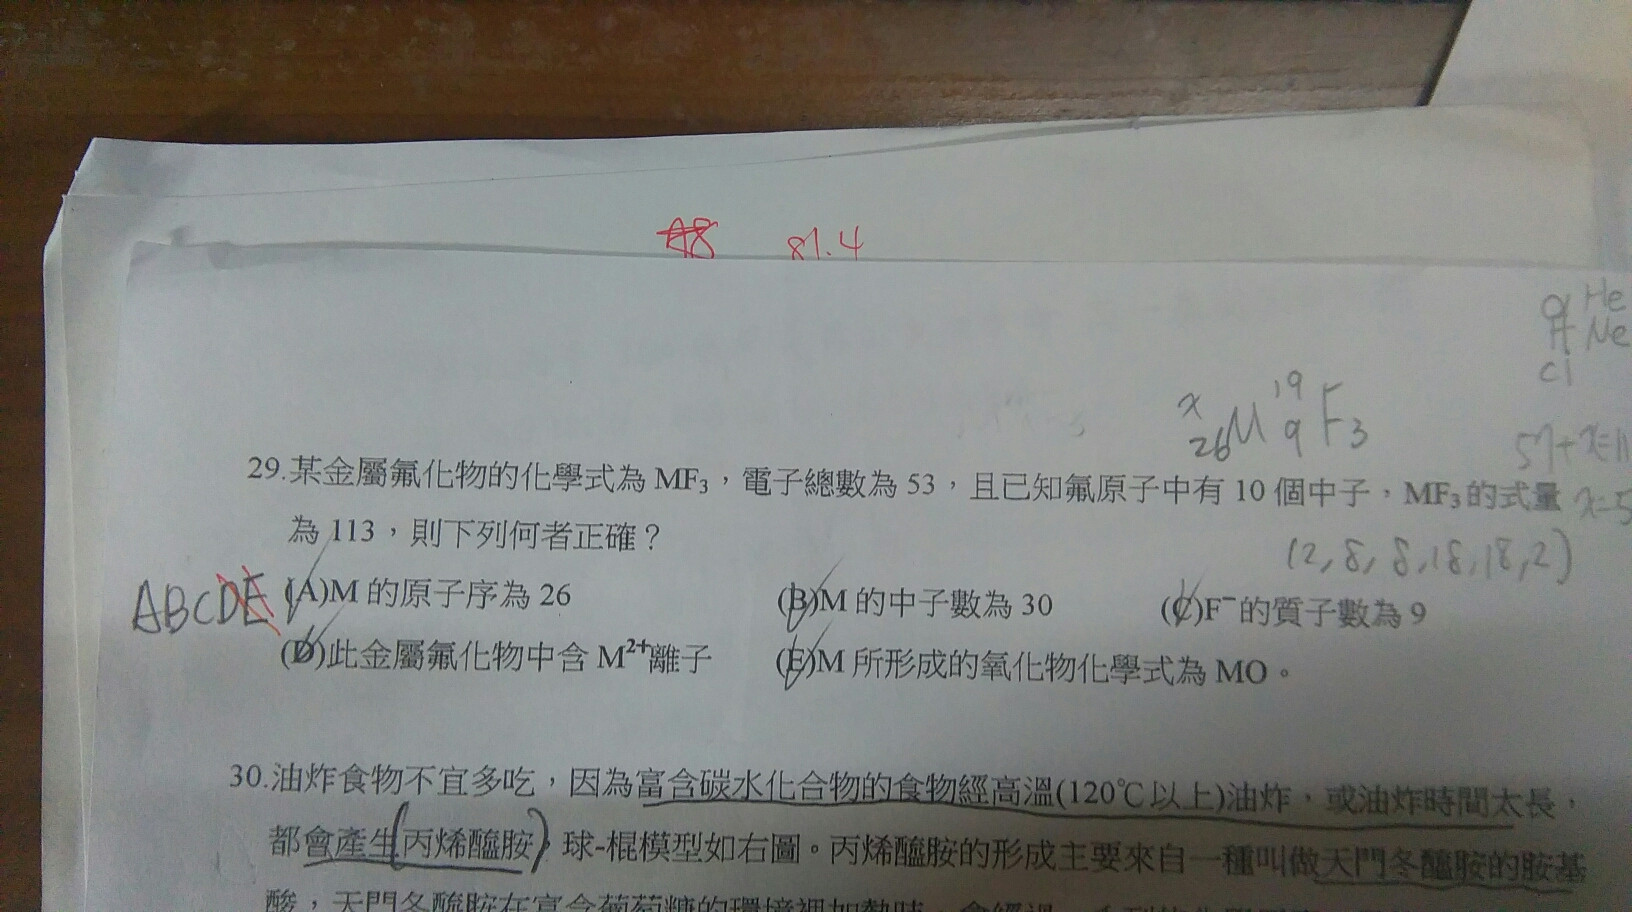 81.4
He
Ne
Cl
x 19
26 M 9 F3
29.某金屬氟化物的化學式為 MF₃,電子總數為 53,且已知氟原子中有 10 個中子,MF₃的式量
為 113,則下列何者正確?
(2,8,8,18,18,2)
ABCDE (A)M 的原子序為 26 (B)M 的中子數為 30 (C)F⁻的質子數為 9
(D)此金屬氟化物中含 M²⁺離子 (E)M 所形成的氧化物化學式為 MO。
30.油炸食物不宜多吃,因為富含碳水化合物的食物經高溫(120℃以上)油炸,或油炸時間太長,
都會產生(丙烯醯胺),球-棍模型如右圖。丙烯醯胺的形成主要來自一種叫做天門冬醯胺的胺基
酸,天門冬醯胺在富含葡萄糖的環境裡加熱時